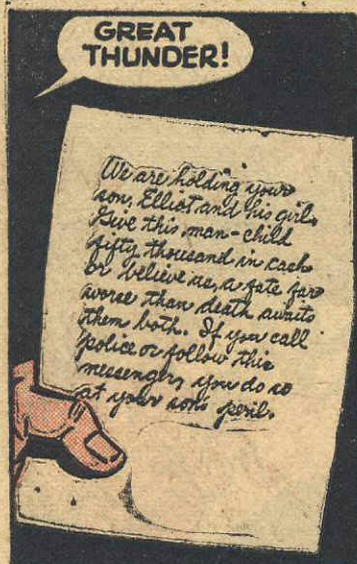 GREAT
THUNDER!
We are holding your
son, Elliot and his girl.
Give this man-child
fifty thousand in cash
or believe us, a fate far
worse than death awaits
them both. If you call
police or follow this
messenger, you do so
at your sons peril.